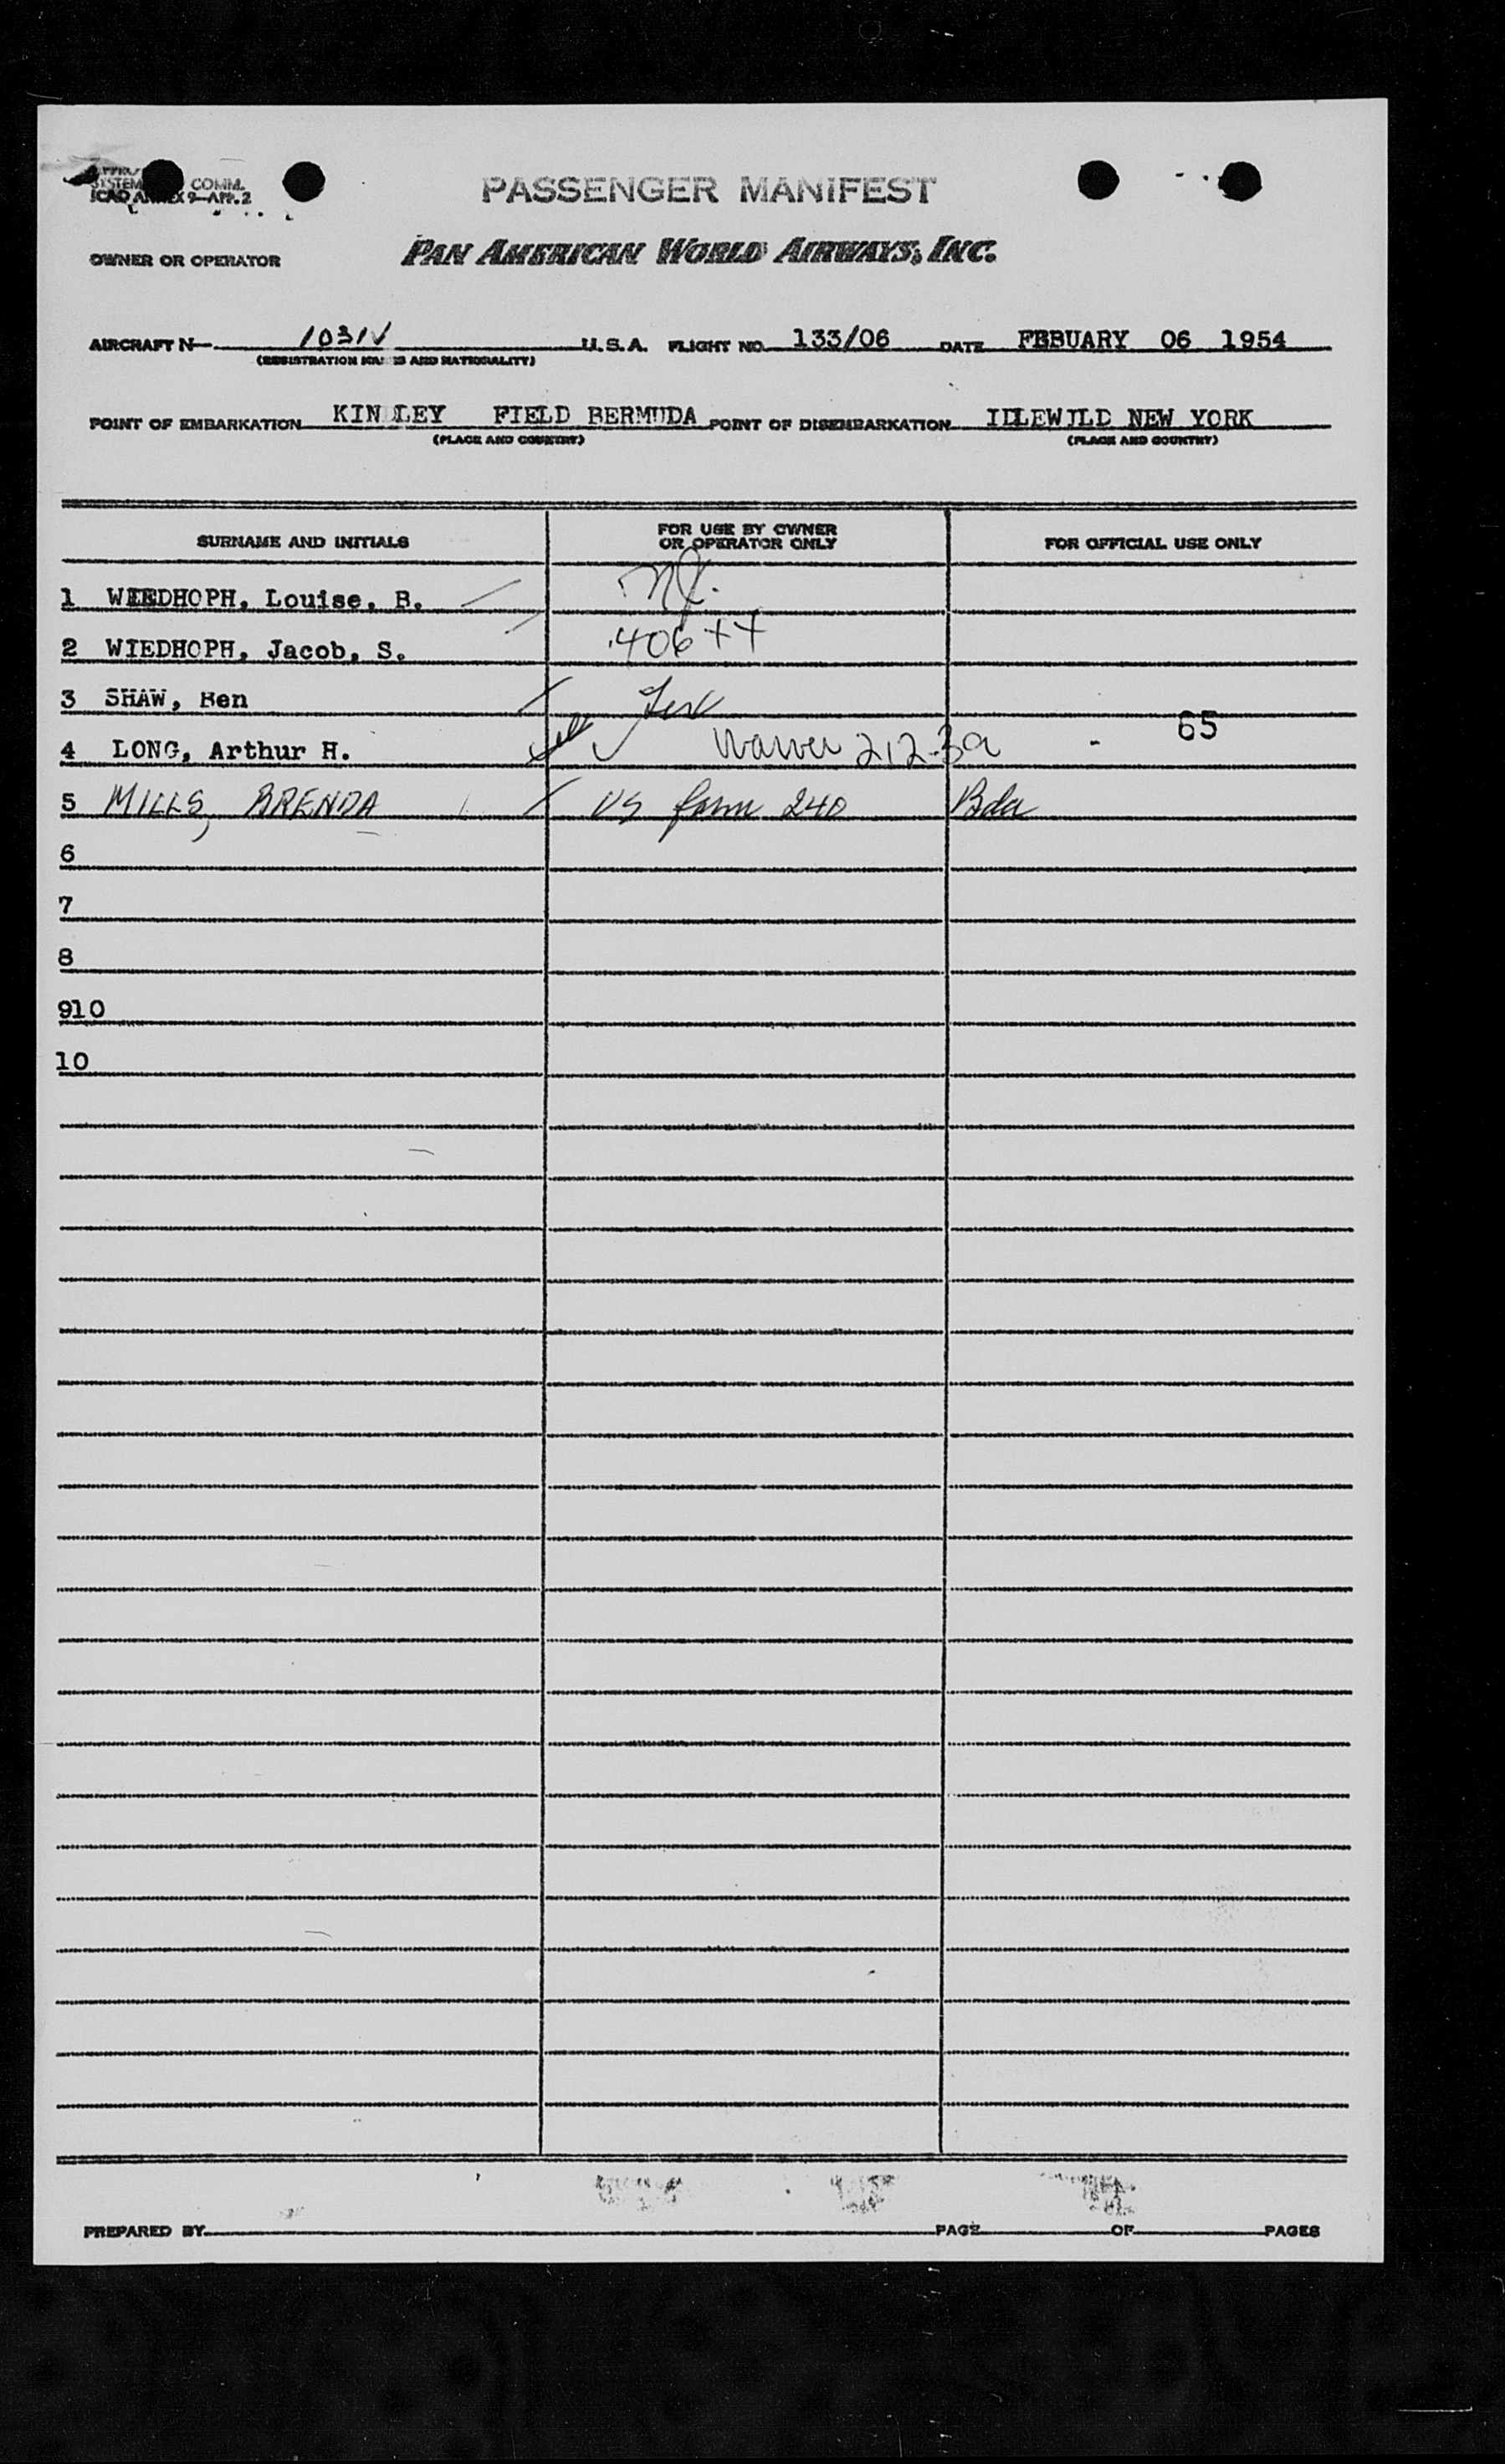 SYSTEM COMM.
ICAO ANNEX 9-APP. 2
PASSENGER MANIFEST
OWNER OR OPERATOR PAN AMERICAN WORLD AIRWAYS, INC.
AIRCRAFT N 1031V U.S.A. FLIGHT NO. 133/06 DATE FEBUARY 06 1954
(REGISTRATION MARKS AND NATIONALITY)
POINT OF EMBARKATION KINDLEY FIELD BERMUDA POINT OF DISEMBARKATION IDLEWILD NEW YORK
(PLACE AND COUNTRY) (PLACE AND COUNTRY)
SURNAME AND INITIALS FOR USE BY OWNER OR OPERATOR ONLY FOR OFFICIAL USE ONLY
1 WIEDHOPH, Louise, B.
2 WIEDHOPH, Jacob, S. 406 ++
3 SHAW, Ben
4 LONG, Arthur H. Waiver 212.3a - 65
5 MILLS, BRENDA US form 240 Bda
6
7
8
910
10
PREPARED BY PAGE OF PAGES